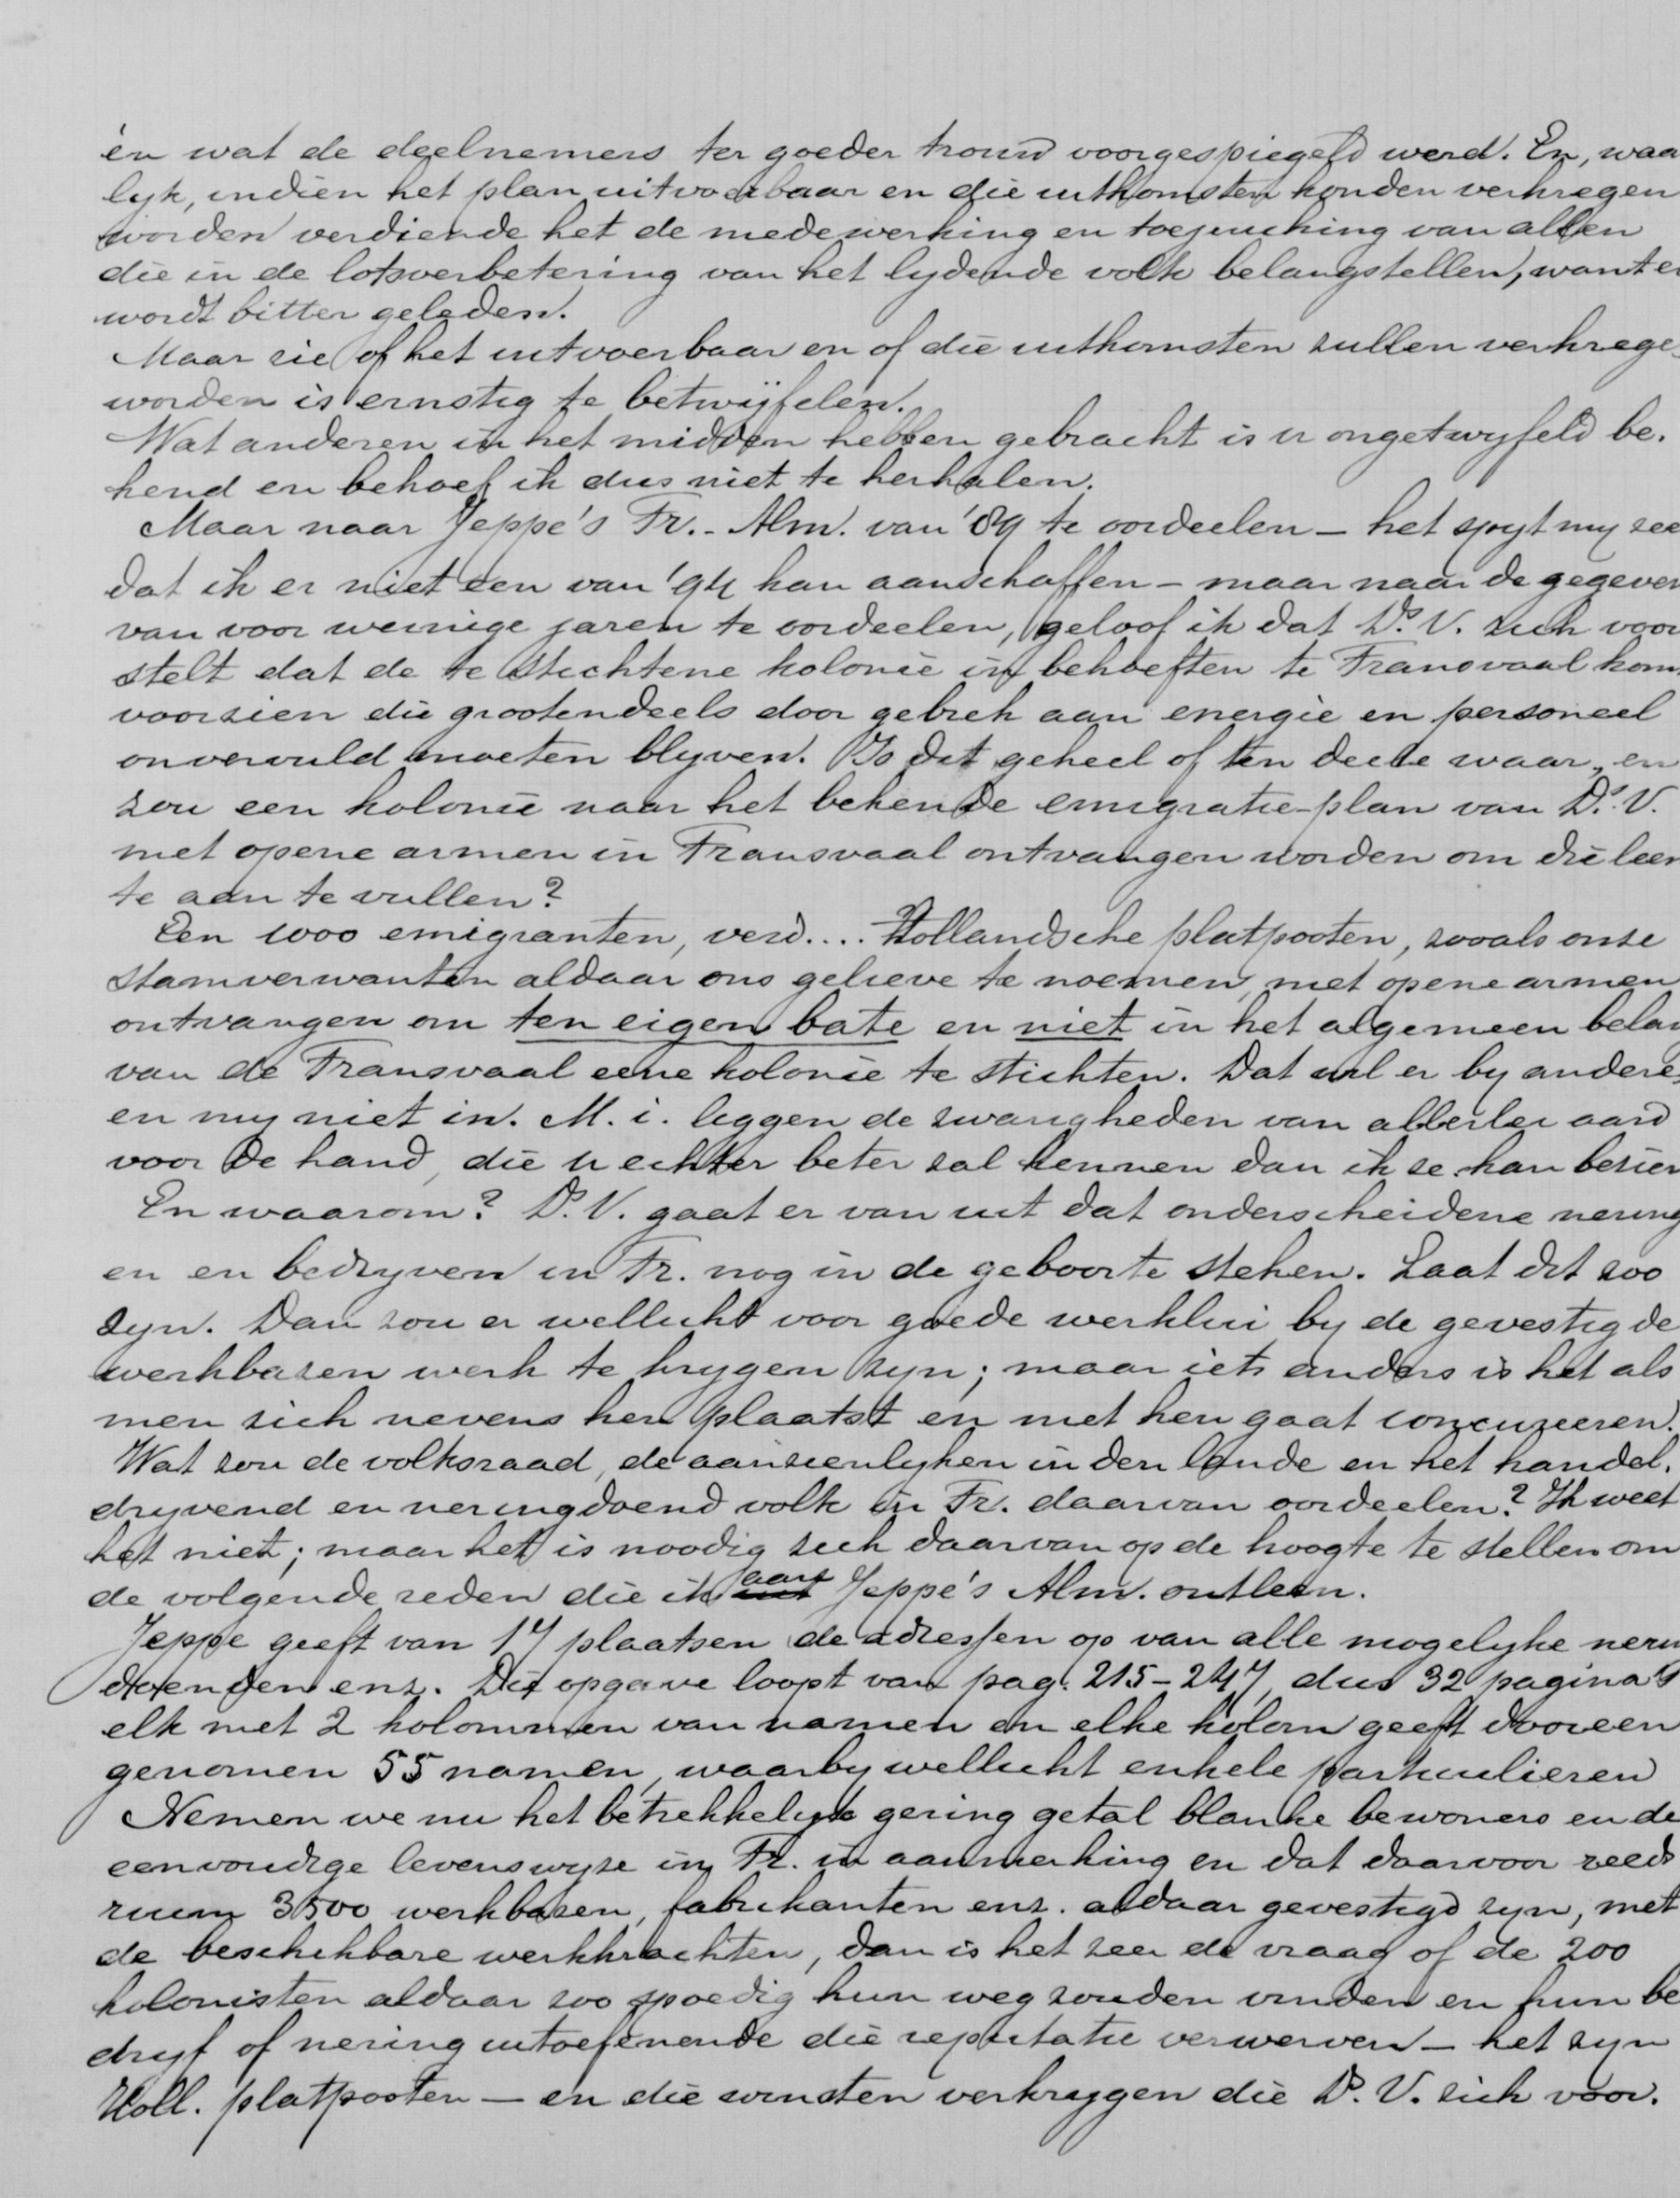 én wat de deelnemers ter goeder trouw voorgespiegeld werd. En, waa
lyk, indien het plan uitvoerbaar en die uitkomsten konden verkregen
worden verdiende het de medewerking en toejuiching van allen
die in de lotsverbetering van het lydende volk belangstellen, want er
wordt bitter geleden.
Maar zie of het uitvoerbaar en of die uitkomsten zullen verkrege
worden is ernstig te betwijfelen.
Wat anderen in het midden hebben gebracht is u ongetwyfeld be.
kend en behoef ik dus niet te herhalen.
Maar naar Jeppe's Tr.- Alm. van '89 te oordeelen – het spyt my zee
dat ik er niet een van '94 kan aanschaffen – maar naar de gegeven
van voor weinige jaren te oordeelen, geloof ik dat Ds. V. zich voor
stelt dat de te stichtene kolonie in behoeften te Transvaal kom
voorzien die grootendeels door gebrek aan energie en personeel
onvervuld moeten blyven. Is dit geheel of ten deele waar, en
zou een kolonie naar het bekende emigratie-plan van Ds. V.
met opene armen in Transvaal ontvangen worden om die leem
te aan te vullen?
Een 1000 emigranten, verd.... Hollandsche platpooten, zooals onze
stamverwanten aldaar ons gelieve te noemen, met opene armen
ontvangen om ten eigen bate en niet in het algemeen belan
van de Transvaal eene kolonie te stichten. Dat wil er by andere
en my niet in. M. i. leggen de zwarigheden van allerlei aard
voor de hand, die u echter beter zal kennen dan ik ze kan bezien
En waarom? Ds. V. gaat er van uit dat onderscheidene nering
en en bedryven in Tr. nog in de geboorte steken. Laat dit zoo
zyn. Dan zou er wellicht voor goede werklui by de gevestigde
werkbazen werk te krygen zyn; maar iets anders is het als
men zich nevens hen plaatst en met hen gaat concureeren.
Wat zou de volksraad, de aanzienlyken in den lande en het handel.
dryvend en neringdoend volk in Tr. daarvan oordeelen? Ik weet
het niet; maar het is noodig zich daarvan op de hoogte te stellen om
de volgende reden die ik aan Jeppe's Alm. ontleen.
Jeppe geeft van 17 plaatsen de adressen op van alle mogelyke nerin
doenden enz. Die opgave loopt van pag. 215 – 247, dus 32 pagina's
elk met 2 kolommen van namen en elke kolom geeft dooreen
genomen 55 namen, waarby wellicht enkele particulieren
Nemen we nu het betrekkelyk gering getal blanke bewoners en de
eenvoudige levenswyze in Tr. in aanmerking en dat daarvoor reeds
ruim 3500 werkbazen, fabrikanten enz. aldaar gevestigd zyn, met
de beschikbare werkkrachten, dan is het zeer de vraag of de 200
kolonisten aldaar zoo spoedig hun weg zouden vinden en hun be
dryf of nering uitoefenende die reputatie verwerven – het zyn
Holl. platpooten – en die winsten verkrygen die Ds. V. zich voor.